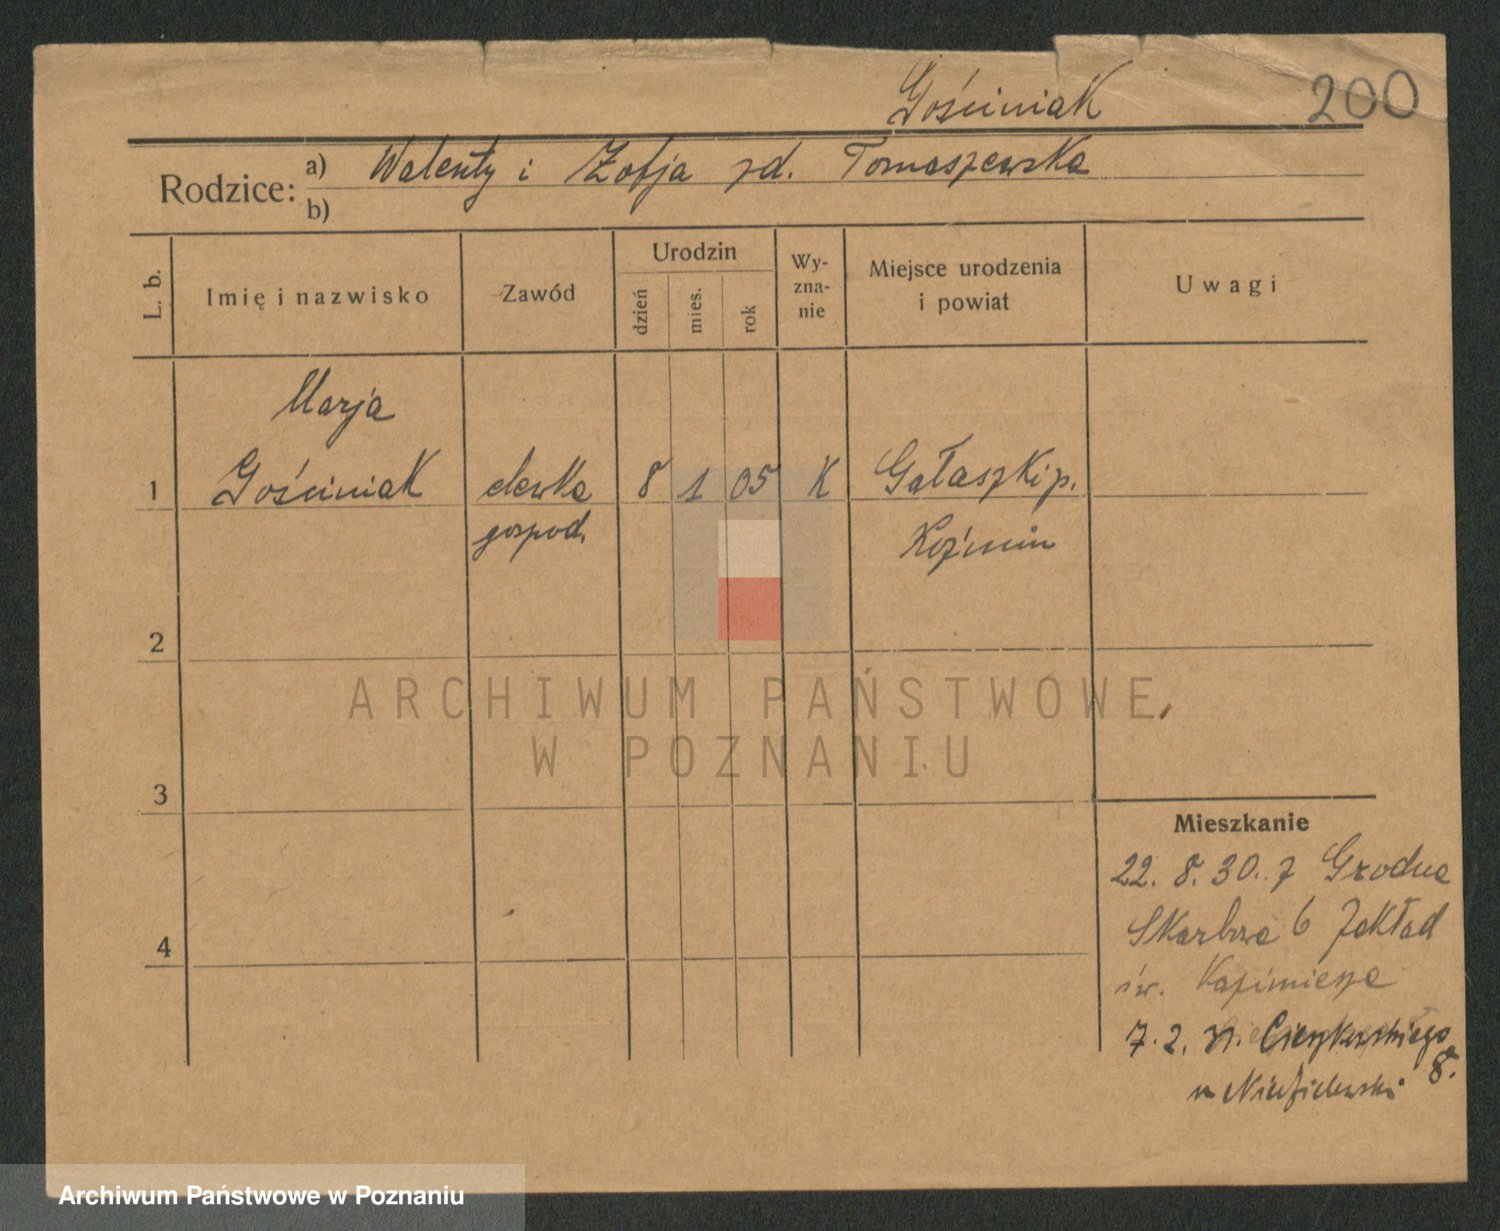 Gościniak
200
Rodzice: a) Walenty i Zofja zd. Tomaszewska
b)
L. b.
Imię i nazwisko
Zawód
Urodzin
dzień
mies.
rok
Wy-
zna-
nie
Miejsce urodzenia
i powiat
Uwagi
Marja
1 Gościniak elewka 8 1 05 K Gałaszki p.
gospod. Koźmin
2
ARCHIWUM PAŃSTWOWE
W POZNANIU
3
Mieszkanie
22. 8. 30. z Grodna
Skarbowa 6 Zakład
4
św. Kazimierza
7. 2. 31. Cieszkowskiego
8.
u Niedzielewski
Archiwum Państwowe w Poznaniu